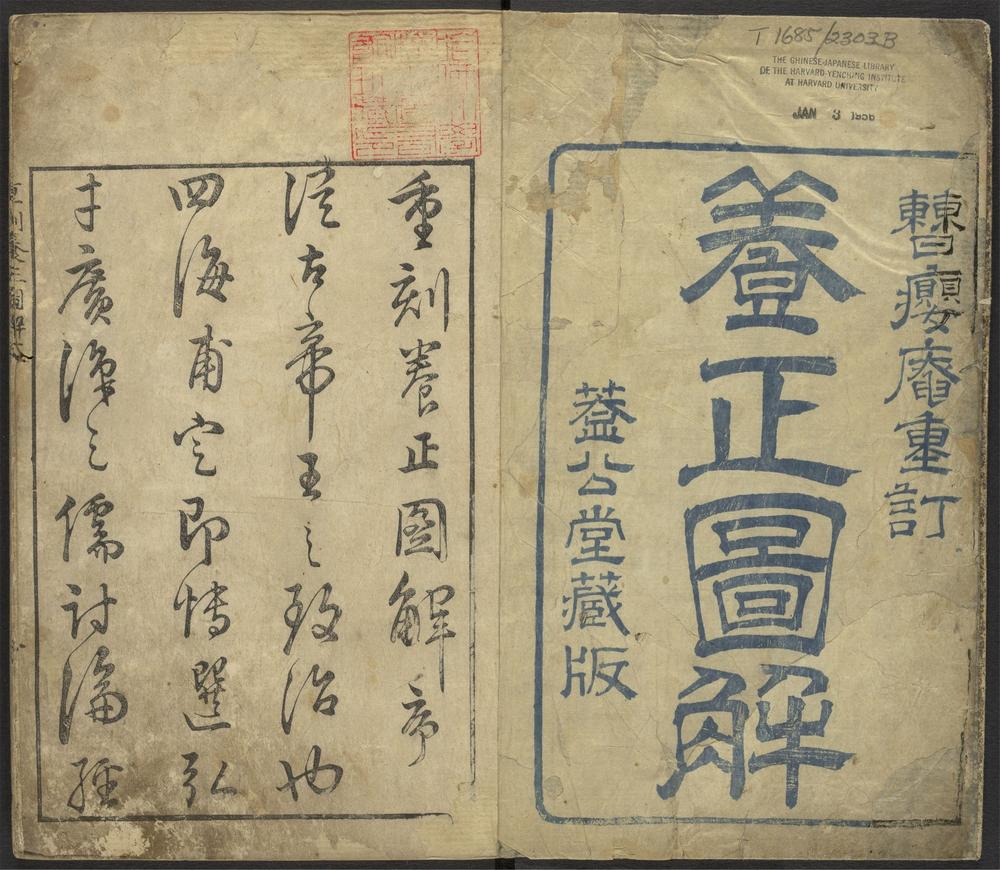 T 1685/2303B
THE CHINESE-JAPANESE LIBRARY
OF THE HARVARD-YENCHING INSTITUTE
AT HARVARD UNIVERSITY
JAN 3 1956
曹癭庵重訂
養正圖解
蓋公堂藏版
哈佛大學
漢和圖書
館珍藏印
重刻養正圖解序
從古帝王之致治也
四海甫定即博選弘
才廣之儒討論經
重刻養正圖解